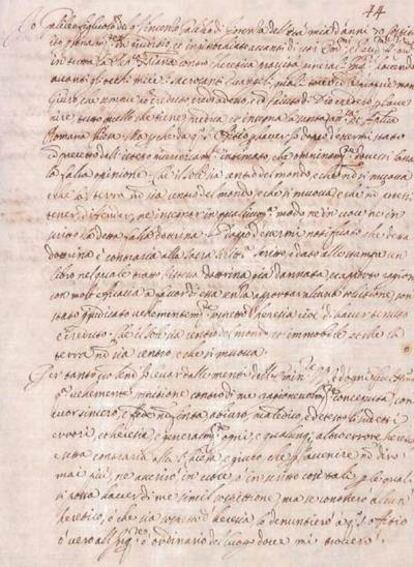 44
Io Galileo figliuolo del q. Vincenzo Galileo di Fiorenza dell'età mia d'anni 70
in giuditio, et inginocchiato avanti di voi
in tutta la Christiana contro l'heretica pravità generali havendo
avanti gl'occhi miei li sacrosanti Evangeli, quali tocco con le proprie mani
Giuro che sempre ho creduto, credo adesso, e con l'aiuto di Dio crederò per l'avve
nire tutto quello che tiene, predica et insegna la
Romana Chiesa. Ma perche da q.o S. Offitio per haver io, dopo d'essermi stato
precetto dall'istesso intimato che omninamente dovessi lasciar
la falsa opinione che il sole sia centro del mondo, e che non si muova
e che la terra non sia centro del mondo, e che si muova, e che non potessi
tener, difendere, ne insegnar in qualsivoglia modo ne in voce ne in
scritto la detta falsa dottrina. e dopo d'essermi notificato che detta
dottrina è contraria alla sacra scrittura, scritto e dato alle stampe un
libro nel quale tratto l'istessa dottrina già dannata et apporto ragioni
con molta efficacia a favor di essa senza apportar alcuna solutione, son
stato giudicato vehementemente sospetto d'heresia, cioè di haver tenuto
e creduto che il sole sia centro del mondo et immobile, et che la
terra non sia centro e che si muova.
Pertanto volendo io levar dalle menti dell'
vehemente suspitione contro di me ragionevolmente conceputa, con
cuor sincero, e fede non finta abiuro, maledico, e detesto li detti
errori, et heresie, e generalmente ogni, e qualunq. altro errore, heresia
e setta contraria alla S. Chiesa. e giuro che per l'avvenire non dirò
mai più, ne asserirò in voce, o in scritto cose tali per le quali
si possa haver di me simil suspitione, ma se conoscerò alcun
heretico, o che sia sospetto d'heresia lo denuntierò a q.o S. Offitio
o vero all' o ordinario del luogo dove mi trovero.